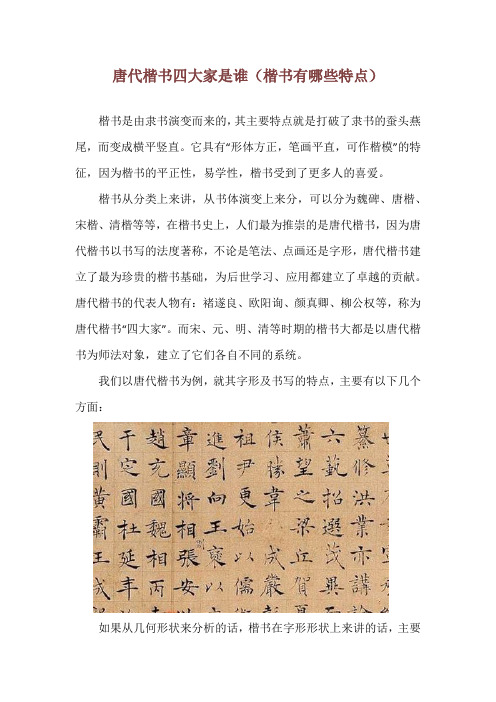 唐代楷书四大家是谁（楷书有哪些特点）
楷书是由隶书演变而来的，其主要特点就是打破了隶书的蚕头燕
尾，而变成横平竖直。它具有“形体方正，笔画平直，可作楷模”的特
征，因为楷书的平正性，易学性，楷书受到了更多人的喜爱。
楷书从分类上来讲，从书体演变上来分，可以分为魏碑、唐楷、
宋楷、清楷等等，在楷书史上，人们最为推崇的是唐代楷书，因为唐
代楷书以书写的法度著称，不论是笔法、点画还是字形，唐代楷书建
立了最为珍贵的楷书基础，为后世学习、应用都建立了卓越的贡献。
唐代楷书的代表人物有：褚遂良、欧阳询、颜真卿、柳公权等，称为
唐代楷书“四大家”。而宋、元、明、清等时期的楷书大都是以唐代楷
书为师法对象，建立了它们各自不同的系统。
我们以唐代楷书为例，就其字形及书写的特点，主要有以下几个
方面：
纂修洪業亦講論
六藝招選茂異
蕭望之梁丘賀
侯勝韋玄成嚴
祖尹更始以儒
進劉向王褒以
章顯將相則張安
趙充國魏相丙
于定國杜延年
民則黃霸王成
如果从几何形状来分析的话，楷书在字形形状上来讲的话，主要